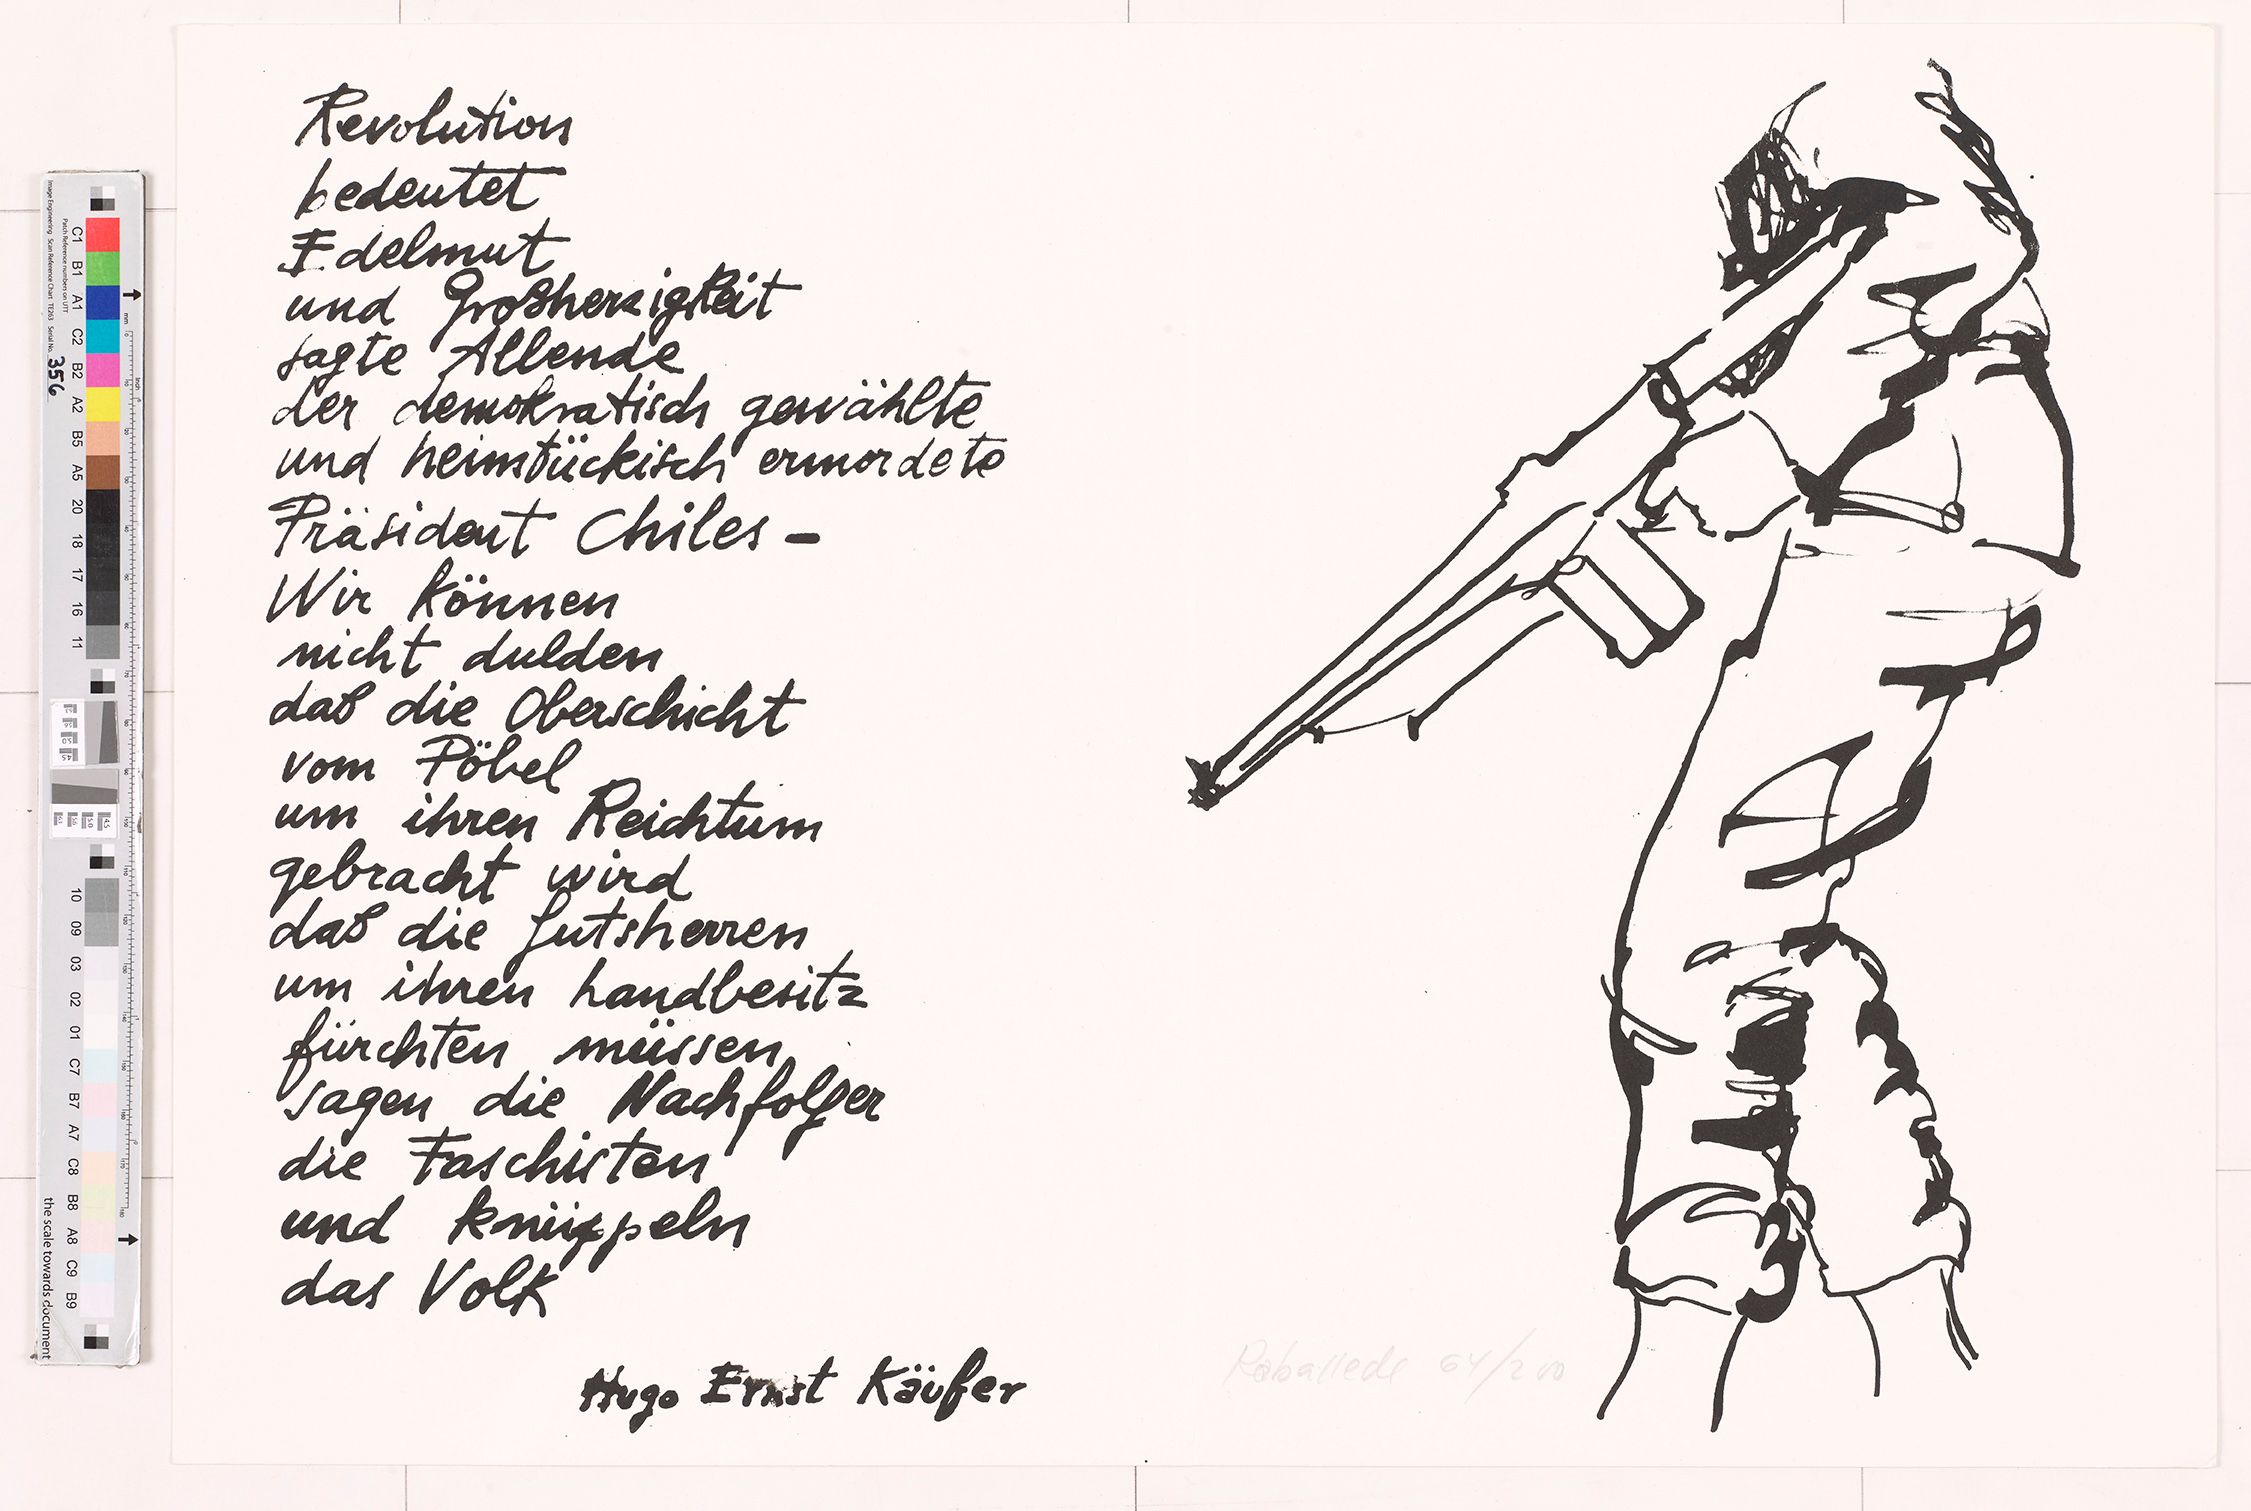 Revolution
bedeutet
Edelmut
und Großherzigkeit
sagte Allende
der demokratisch gewählte
und heimtückisch ermordete
Präsident Chiles –
Wir können
nicht dulden
daß die Oberschicht
vom Pöbel
um ihren Reichtum
gebracht wird
daß die Gutsherren
um ihren Landbesitz
fürchten müssen
sagen die Nachfolger
die Faschisten
und knüppeln
das Volk
Hugo Ernst Käufer
64/200
Image Engineering Scan Reference Chart TE263 Serial No. 356
Patch Reference numbers on UTT
C1
B1
A1
C2
B2
A2
B5
A5
20
18
17
16
11
10
09
03
02
01
C7
B7
A7
C8
B8
A8
C9
B9
mm
the scale towards document